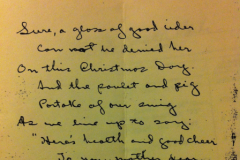 Sure, a glass of good cider
Can not be denied her
On this Christmas Day.
And the poulet and pig
Partake of our swig
As we line up to say:
"Here's health and good cheer
To you, mother dear